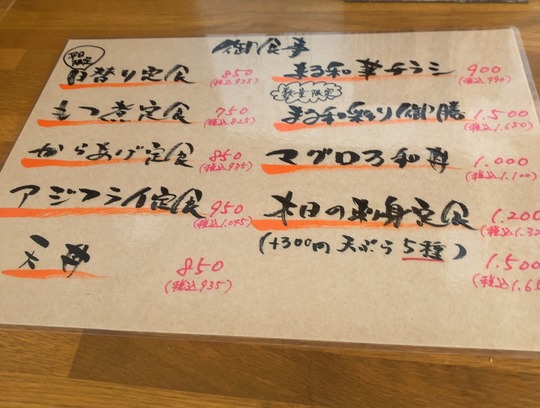 御食事
平日限定
日替り定食 850
(税込935)
もつ煮定食 750
(税込825)
からあげ定食 850
(税込935)
アジフライ定食 950
(税込1.045)
天丼 850
(税込935)
まる和華チラシ 900
(税込990)
数量限定
まる和彩り御膳 1.500
(税込1.650)
マグロ三和丼 1.000
(税込1.100)
本日の刺身定食 1.200
(税込1.32
(+300円 天ぷら5種) 1.500
(税込1.65